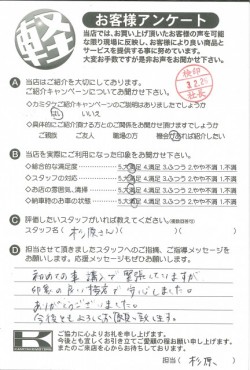 軽
お客様アンケート
当店では、お買い上げ頂いたお客様の声を可能
な限り現場に反映し、お客様により良い商品と
サービスを提供する事に努めています。
大変お手数ですが是非お声をお聞かせ下さい。
A 当店はご紹介を大切にしております。
ご紹介キャンペーンについてお聞かせ下さい
◇カミタケご紹介キャンペーンのご説明はありましたでしょうか
はい いいえ
◇具体的にご紹介頂ける方とのご関係をお聞かせ頂けますでしょうか
ご親族 ご友人 職場の方 機会があれば紹介したい
検印
社長
B 当店を実際にご利用になった印象をお聞かせ下さい。
◇総合的な満足度 5.大満足 4.満足 3.ふつう 2.やや不満 1.不満
◇スタッフの対応 5.大満足 4.満足 3.ふつう 2.やや不満 1.不満
◇お店の雰囲気、清掃 5.大満足 4.満足 3.ふつう 2.やや不満 1.不満
◇納車時のお車の状態 5.大満足 4.満足 3.ふつう 2.やや不満 1.不満
C 評価したいスタッフがいれば教えてください。(複数回答可)
スタッフ名( 杉原さん )
D 担当させて頂きましたスタッフへのご指摘、ご指導メッセージを
お願いします。応援メッセージもぜひお願いします。
初めての車購入で緊張していますが
印象の良い接客で安心しました。
ありがとうございました。
今後ともよろしくお願い致します。
K
ご協力に心よりお礼を申し上げます。
今後とも宜しくお引き立てご愛顧の程お願い申し上げます。
またのご来店を心からお待ちしております。
担当( 杉原 )